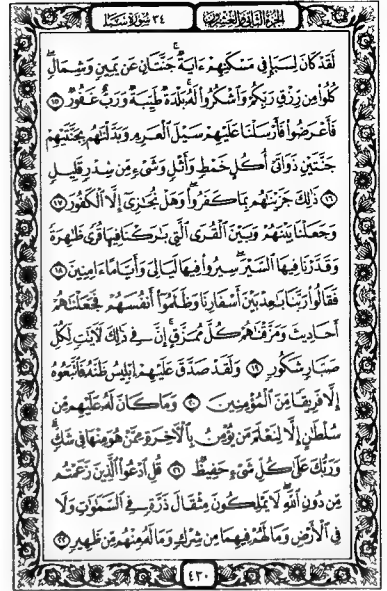 الجزء الثاني والعشرون ٣٤ سورة سبإ
لَقَدْ كَانَ لِسَبَإٍ فِى مَسْكَنِهِمْ ءَايَةٌ ۖ جَنَّتَانِ عَن يَمِينٍ وَشِمَالٍ ۖ
كُلُوا۟ مِن رِّزْقِ رَبِّكُمْ وَٱشْكُرُوا۟ لَهُۥ ۚ بَلْدَةٌ طَيِّبَةٌ وَرَبٌّ غَفُورٌ ١٥
فَأَعْرَضُوا۟ فَأَرْسَلْنَا عَلَيْهِمْ سَيْلَ ٱلْعَرِمِ وَبَدَّلْنَٰهُم بِجَنَّتَيْهِمْ
جَنَّتَيْنِ ذَوَاتَىْ أُكُلٍ خَمْطٍ وَأَثْلٍ وَشَىْءٍ مِّن سِدْرٍ قَلِيلٍ
١٦ ذَٰلِكَ جَزَيْنَٰهُم بِمَا كَفَرُوا۟ ۖ وَهَلْ نُجَٰزِىٓ إِلَّا ٱلْكَفُورَ ١٧
وَجَعَلْنَا بَيْنَهُمْ وَبَيْنَ ٱلْقُرَى ٱلَّتِى بَٰرَكْنَا فِيهَا قُرًى ظَٰهِرَةً
وَقَدَّرْنَا فِيهَا ٱلسَّيْرَ ۖ سِيرُوا۟ فِيهَا لَيَالِىَ وَأَيَّامًا ءَامِنِينَ ١٨
فَقَالُوا۟ رَبَّنَا بَٰعِدْ بَيْنَ أَسْفَارِنَا وَظَلَمُوٓا۟ أَنفُسَهُمْ فَجَعَلْنَٰهُمْ
أَحَادِيثَ وَمَزَّقْنَٰهُمْ كُلَّ مُمَزَّقٍ ۚ إِنَّ فِى ذَٰلِكَ لَءَايَٰتٍ لِّكُلِّ
صَبَّارٍ شَكُورٍ ١٩ وَلَقَدْ صَدَّقَ عَلَيْهِمْ إِبْلِيسُ ظَنَّهُۥ فَٱتَّبَعُوهُ
إِلَّا فَرِيقًا مِّنَ ٱلْمُؤْمِنِينَ ٢٠ وَمَا كَانَ لَهُۥ عَلَيْهِم مِّن
سُلْطَٰنٍ إِلَّا لِنَعْلَمَ مَن يُؤْمِنُ بِٱلْءَاخِرَةِ مِمَّنْ هُوَ مِنْهَا فِى شَكٍّ ۗ
وَرَبُّكَ عَلَىٰ كُلِّ شَىْءٍ حَفِيظٌ ٢١ قُلِ ٱدْعُوا۟ ٱلَّذِينَ زَعَمْتُم
مِّن دُونِ ٱللَّهِ ۖ لَا يَمْلِكُونَ مِثْقَالَ ذَرَّةٍ فِى ٱلسَّمَٰوَٰتِ وَلَا
فِى ٱلْأَرْضِ وَمَا لَهُمْ فِيهِمَا مِن شِرْكٍ وَمَا لَهُۥ مِنْهُم مِّن ظَهِيرٍ ٢٢
٤٣٠